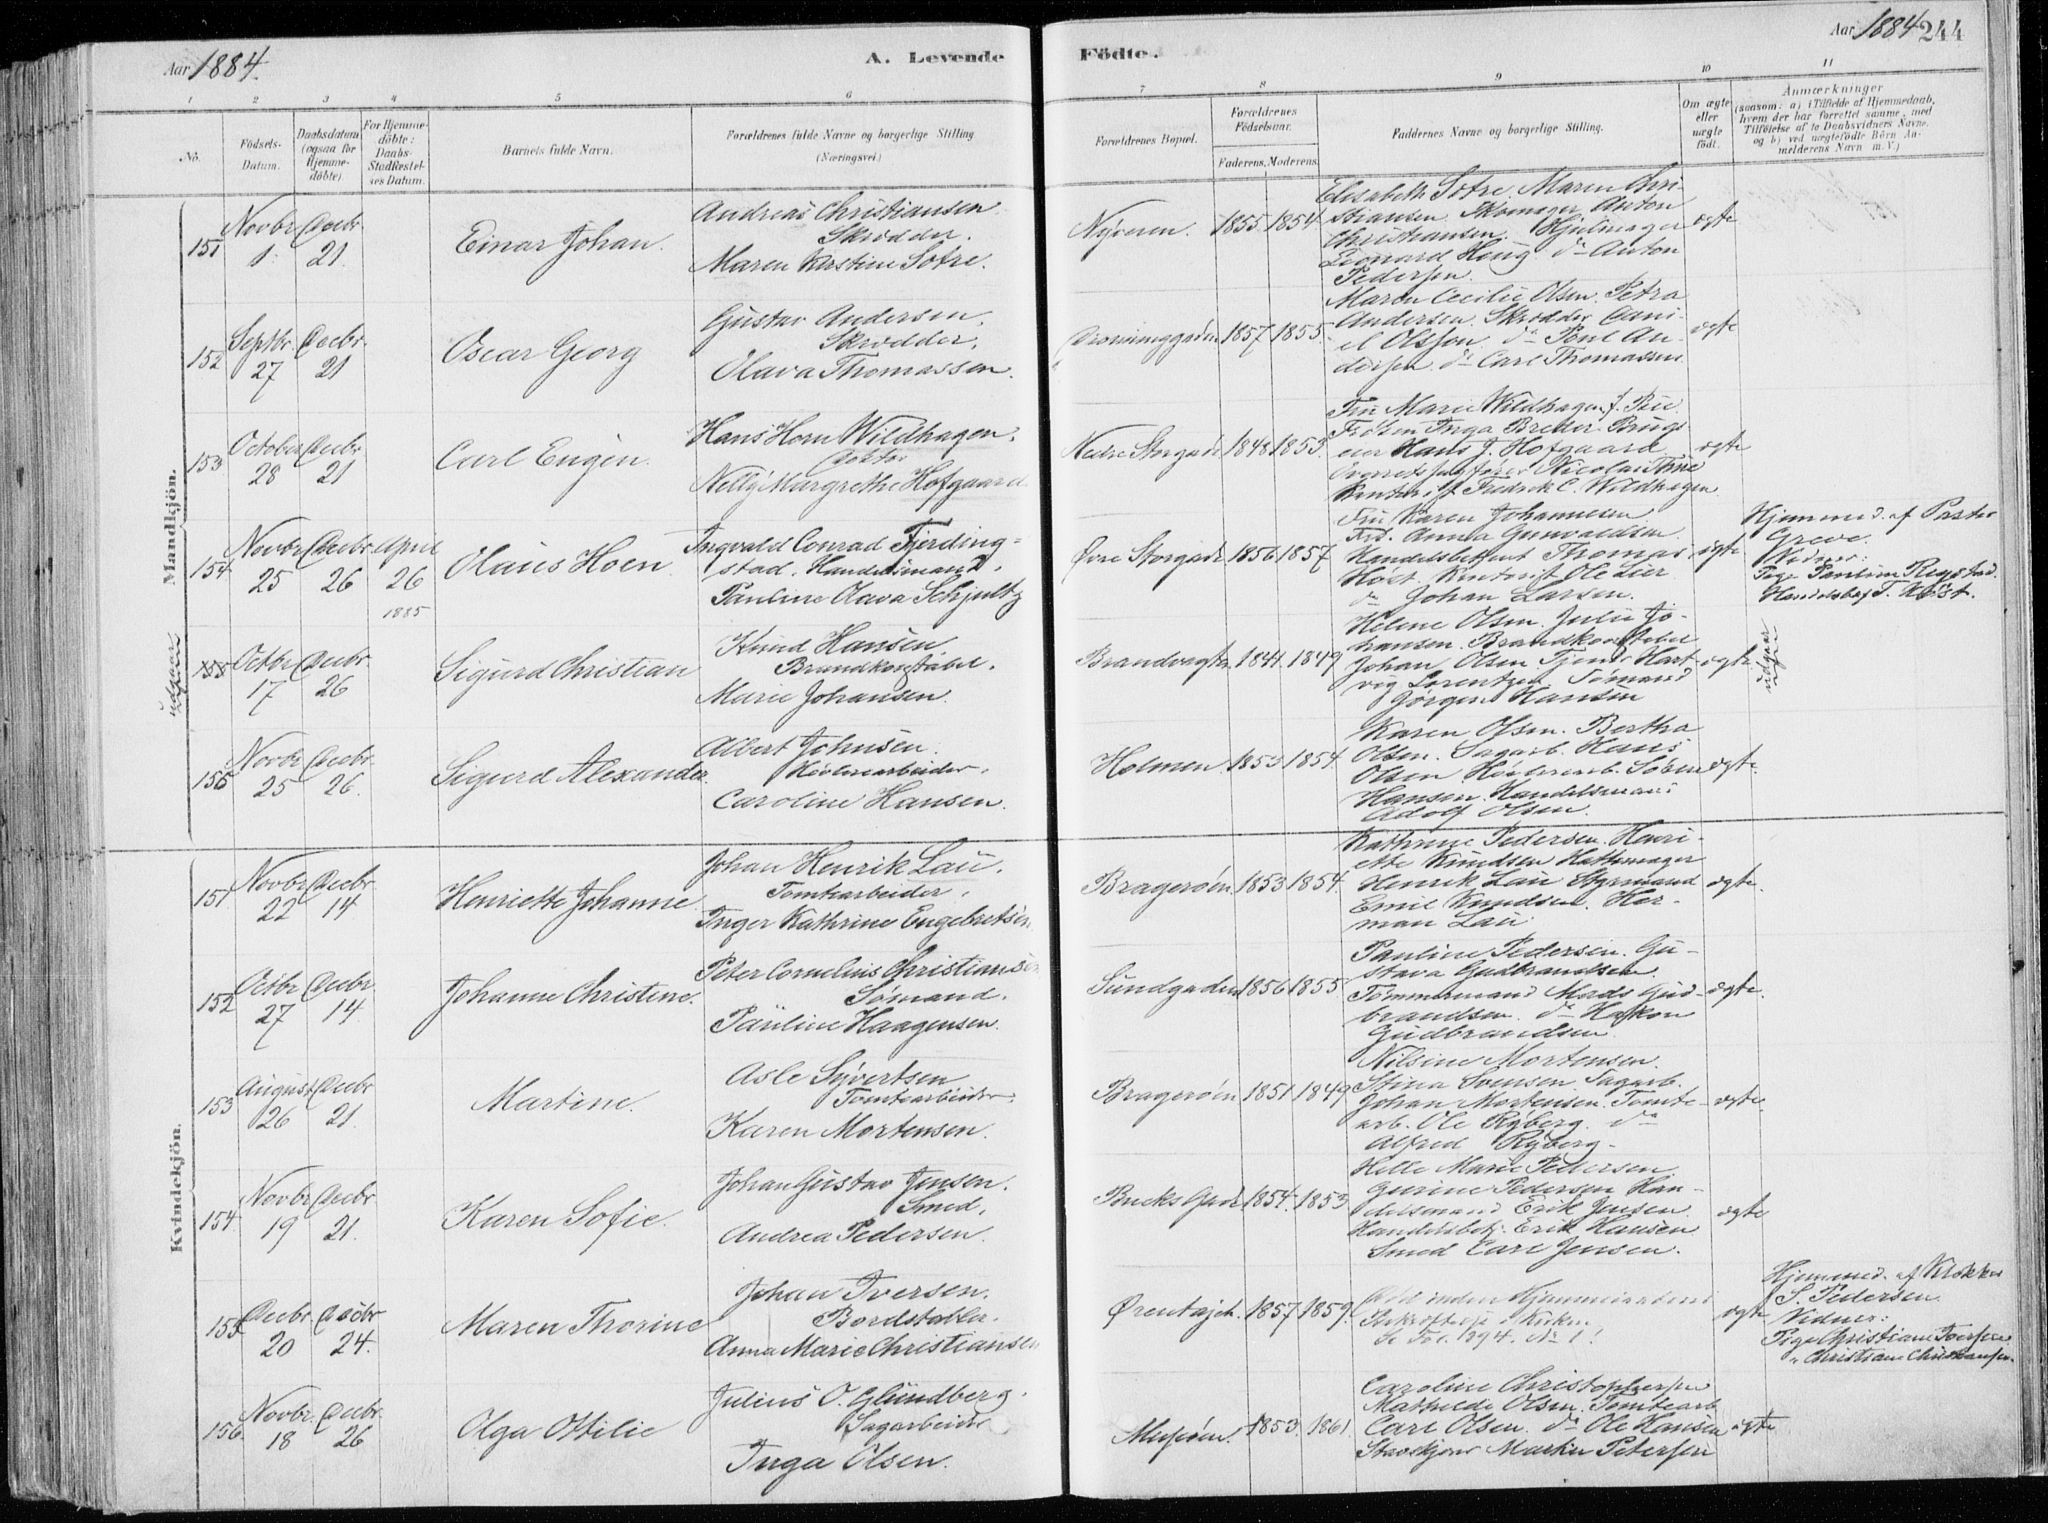 Aar 1884.
A. Levende
1 2 3 4 5 6
No.
Födsels-
Datum.
Daabsdatum
(ogsaa for
Hjemme-
döbte).
For Hjemme-
döbte:
Daabs-
Stadfæstel-
ses Datum.
Barnets fulde Navn.
Forældrenes fulde Navne og borgerlige Stilling
(Næringsvei.)
Födte.
Aar 1884 244
7 8 9 10 11
Forældrenes Bopæl.
Forældrenes
Födselsaar.
Faderens. Moderens.
Faddernes Navne og borgerlige Stilling.
Om ægte
eller
uægte
födt.
Anmærkninger
(saasom: a) i Tilfælde af Hjemmedaab,
hvem der har forrettet samme, med
Tilföielse af to Daabsvidners Navne,
og b) ved uægtefödte Börn An-
melderens Navn m. V.)
Mandkjön.
151 Novbr 1. Decbr. 21. Einar Johan.
Andreas Christiansen.
Skrædder.
Maren Kirstine Sotre.
Nyveien. 1855. 1854.
Elisabeth Sotre. Maren Chri-
stiansen. Skomager Anton
Christiansen. Hjulmager
Leonard Houg. do Anton
Pedersen.
ægte
152 Septbr. 27 Decbr. 21 Oscar Georg
Gustav Andersen.
Skrædder.
Olava Thomassen.
Dronninggaden 1857 1855.
Maren Cecilie Olsen. Petra
Andersen. Skrædder Dani-
el Olssen. do Poul An-
dersen. do Carl Thomassen
ægte
153 October 28 Decbr 21 Carl Eugen.
Hans Horn Wildhagen.
Doktor
Nelly Margrethe Hofgaard
Nedre Storgade 1848. 1853.
Fru Marie Wildhagen f. Piu
Frøken Inga Breker. Brugs
eier Hans J. Hofgaard
Overretssagfører Nicolai Thue
Kontorist Fredrik C. Wildhagen
ægte
154 Novbr 25 Decbr 26 April 26 1885 Olaus Hoen
Ingvald Conrad Fjerding-
stad. Handelsmand.
Pauline Olava Schjultz
Øvre Storgade 1856 1857
Fru Karen Johannesen
Frk. Anna Gunvaldsen
Handelsbetjent Thomas
Høst. Kontorist Ole Lier
do Johan Larsen.
ægte
Hjemmed. af Pastor
Greve.
Vidner:
Pige Pauline Regstad.
Handelsbetj. T. Høst.
udgaar
155 Octbr 17 Decbr. 26 Sigurd Christian
Knud Hansen.
Brandkonstabel.
Marie Johansen.
Brandvagten 1841. 1849
Helene Olsen. Julie Jo-
hansen. Brandkonstabel
Johan Olsen. Tjener Hart-
vig Lorentzen. Sømand
Jørgen Hansen
ægte
udgaar
156 Novbr 25 Decbr. 26. Sigurd Alexander
Albert Johnsen.
Høvleriarbeider.
Caroline Hansen.
Holmen 1853 1854
Karen Olsen. Bertha
Olsen. Sagarb. Hans
Olsen. Høvleriarb. Søren
Hansen. Handelsmand
Adolf Olsen.
ægte.
Kvindekjön.
151 Novbr 22 Decbr. 14 Henriette Johanne
Johan Henrik Lau.
Tomtearbeider.
Inger Kathrine Engebretsen
Bragerøen 1853 1854
Kathrine Pedersen. Henri-
ette Knudsen. Hattemager
Henrik Lau. Styrmand
Emil Knudsen. Her-
man Lau.
ægte.
152 Octbr 27 Decbr. 14. Johanne Christine.
Peter Cornelius Christiansen
Sømand.
Pauline Haagensen.
Sundgaden 1856 1855
Pauline Pedersen. Gu-
stava Gudbrandsen.
Tømmermand Mads Gud-
brandsen. do Haakon
Gudbrandsen
ægte.
153 August 26 Decbr 21. Martine.
Asle Syvertsen
Tomtearbeider.
Karen Mortensen.
Bragerøen 1851 1849
Nilsine Mortensen.
Stina Svensen. Sagarb.
Johan Mortensen. Tomte-
arb. Ole Ryberg. do
Alfred Ryberg.
ægte.
154 Novbr 19 Decbr. 21. Karen Sofie.
Johan Gustav Jensen.
Smed.
Andrea Pedersen.
Bucks Gade 1854. 1853
Helle Marie Pedersen.
Gurine Pedersen. Han-
delsmand Erik Jensen.
Handelsbetj. Erik Hansen
Smed Carl Jensen.
ægte
155 Decbr 20 Decbr 24. Maren Thorine
Johan Iversen.
Bordstabler.
Anna Marie Christiansen
Ørentajet. 1857 1859.
Død inden Hjemmedaabens
Bekræftelse i Kirken
Se Fol. 294. No 1.
ægte
Hjemmed. af Klokker
S. Pedersen
Vidner:
Pige Christiane Iversen
" Christiane Christiansen.
156. Novbr. 18 Decbr. 26 Olga Ottilie
Julius O. Glundberg.
Sagarbeider
Inga Olsen.
1853. 1861.
Caroline Christophersen
Mathilde Olsen. Tomtearb.
Carl Olsen. do Ole Hansen
Martin Petersen
ægte